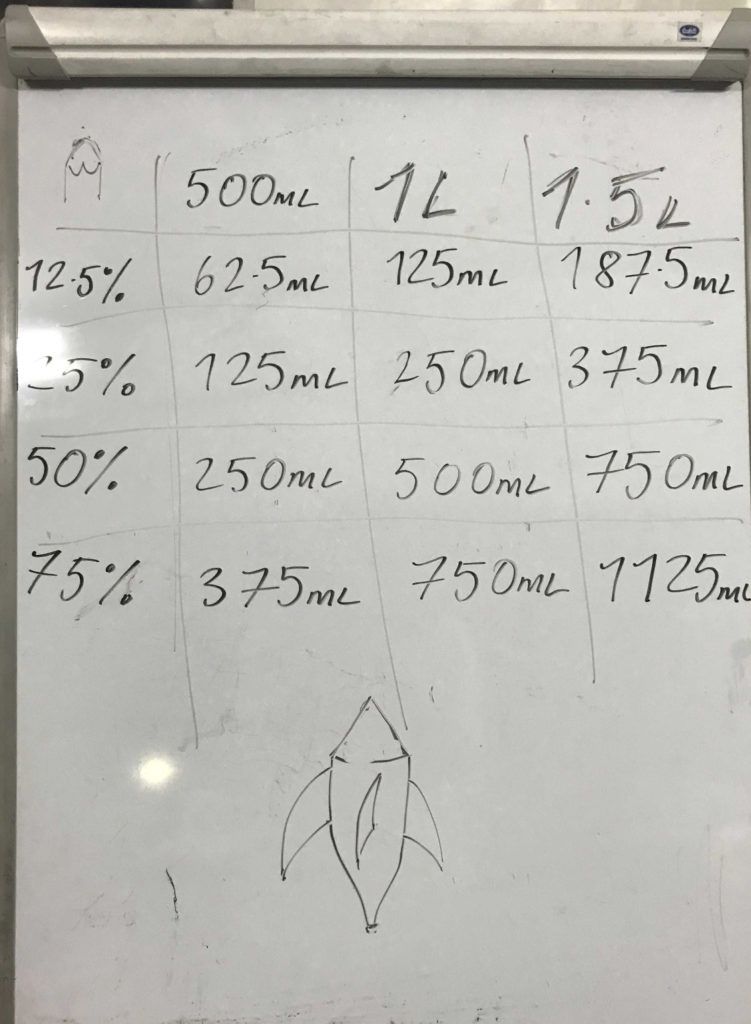 500mL 1L 1.5L
12.5% 62.5mL 125mL 187.5mL
5% 125mL 250mL 375mL
50% 250mL 500mL 750mL
75% 375mL 750mL 1125mL